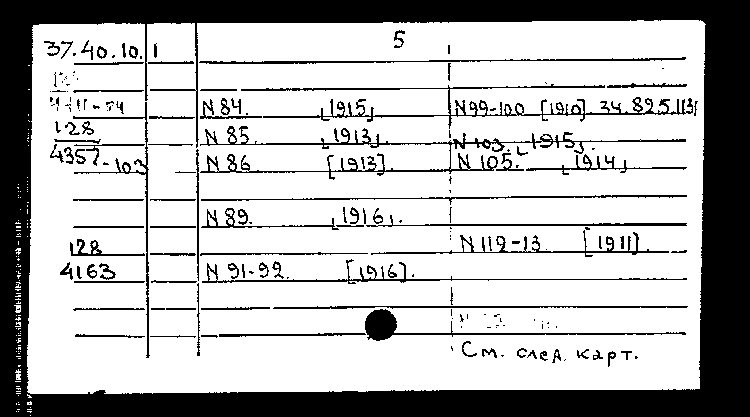 37.40.10.1 5
N 84. [1915] N 99-100 [1910]. 34.8.25.113
128 N 85. [1913]. N 103. [1915].
4357-103 N 86 [1913]. N 105. [1914]
N 89. [1916].
128 N 112-13. [1911].
4163 N 91-92. [1916].
См. след. карт.